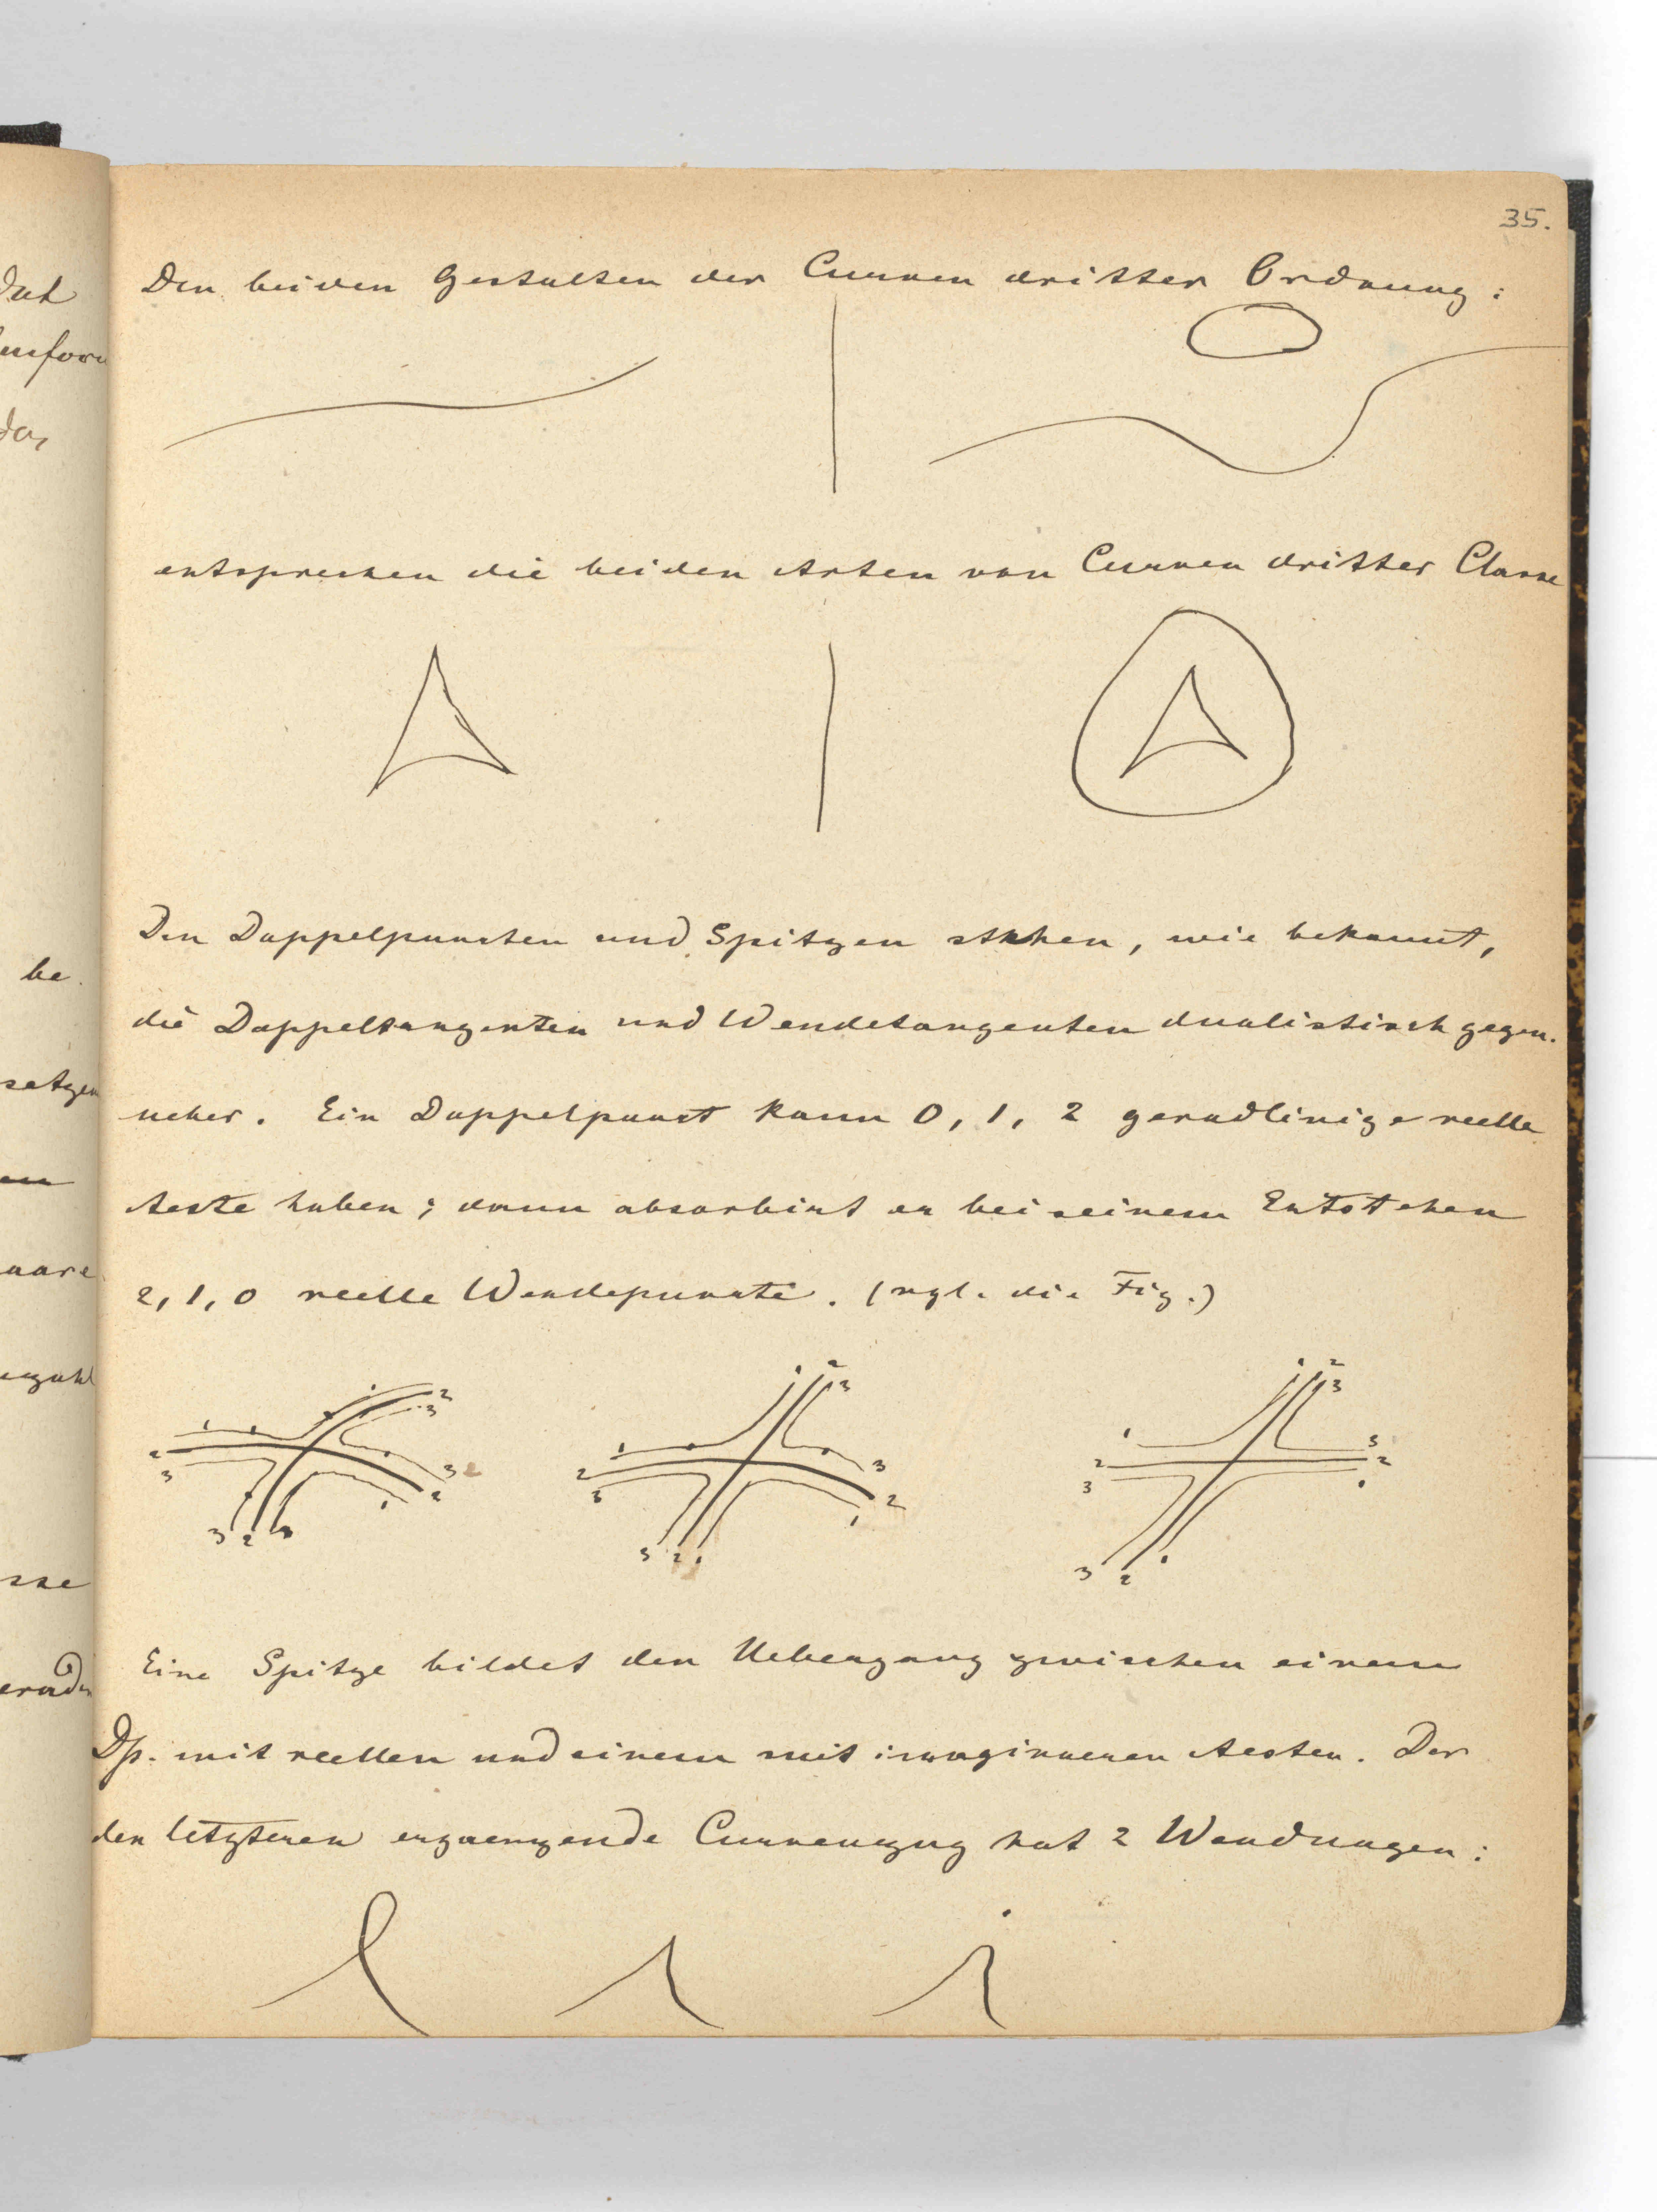 35.
Den beiden Gestalten der Curven dritter Ordnung:
entsprechen die beiden Arten von Curven dritter Classe
Den Doppelpuncten und Spitzen stehen, wie bekannt,
be
die Doppeltangenten und Wendetangenten dualistisch gegen-
setzen
ueber. Ein Doppelpunct kann 0, 1, 2 geradlinige reelle
Aeste haben; dann absorbirt er bei seinem Entstehen
2, 1, 0 reelle Wendepuncte. (vgl. die Fig.)
1 2 3 1 2 3 1 2 3
1 2 3 3 2 1 1 2 3 3 2 1 1 2 3 3 2 1
3 2 1 3 2 1 3 2 1
Eine Spitze bildet den Uebergang zwischen einem
Dp. mit reellen und einem mit imaginaeren Aesten. Der
den letzteren ergaenzende Curvenzug hat 2 Wendungen: